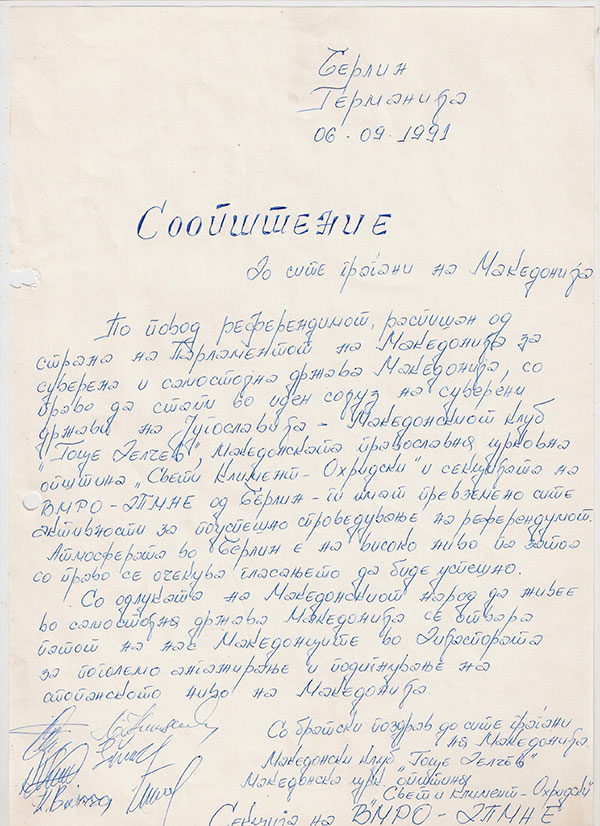 Берлин
Германија
06-09-1991
Соопштение
До сите граѓани на Македонија
По повод референдимот, распишан од
страна на Парламентот на Македонија за
суверена и самостојна држава Македонија, со
право да стапи во иден сојуз на суверени
држави на Југославија - Македонскиот клуб
"Гоце Делчев", Македонската православна црковна
општина "Свети Климент-Охридски" и секцијата на
ВМРО-ДПМНЕ од Берлин - ги имат превземено сите
активности за поуспешно спроведување на референдумот.
Атмосферата во Берлин е на високо ниво па затоа
со право се очекува гласањето да биде успешно.
Со одлуката на Македонскиот народ да живее
во самостојна држава Македонија се отвара
патот на нас Македонците во Дијаспората
за поголемо ангажирање и подигнување на
стопанското ниво на Македонија.
Со братски поздрав до сите граѓани
на Македонија.
Македонски клуб "Гоце Делчев"
Македонска црк. општина
"Свети Климент-Охридски"
Секција на "ВМРО-ДПМНЕ"